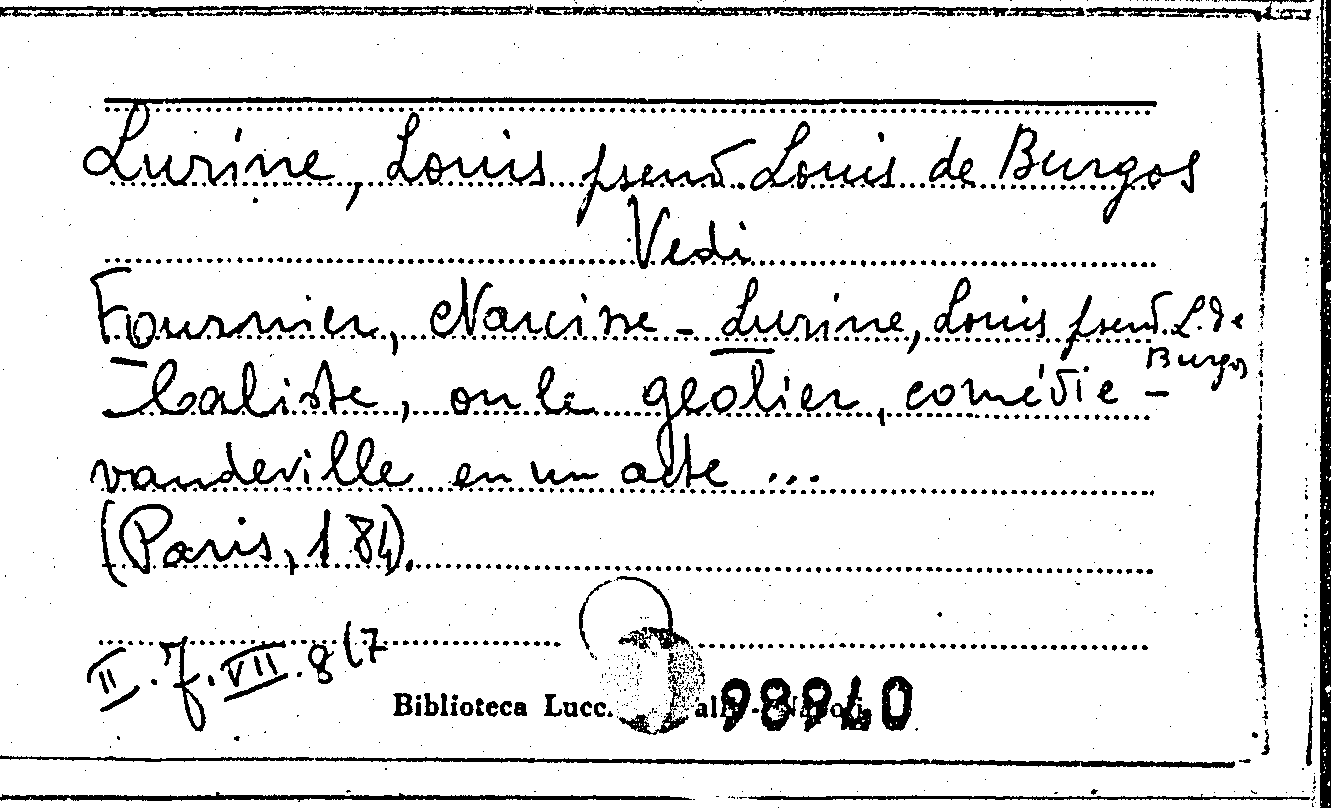 Lurine, Louis pseud. Louis de Burgos
Vedi
Fournier, Narcisse - Lurine, Louis pseud. L. de
Burgos
Caliste, ou le geolier, comédie -
vaudeville en un acte ...
(Paris, 184).
II. J. VII. 8 (7
Biblioteca Lucc.
98940